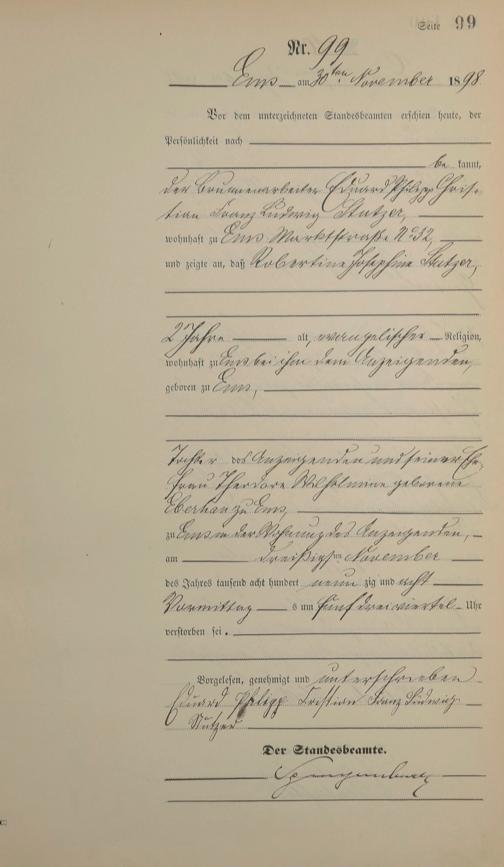 Seite 99
Nr. 99
Ems am 30ten November 1898
Vor dem unterzeichneten Standesbeamten erschien heute, der
Persönlichkeit nach
be kannt,
der Brunnenarbeiter Eduard Philipp Chris-
tian Franz Ludwig Stutzer,
wohnhaft zu Ems Marktstraße No 32,
und zeigte an, daß Robertine Josephine Stutzer,
2 Jahre alt, evangelischer Religion,
wohnhaft zu Ems bei ihm dem Anzeigenden,
geboren zu Ems,
Tochter des Anzeigenden und seiner Ehe-
frau Theodore Wilhelmine geborene
zu Ems,
zu Ems in der Wohnung des Anzeigenden,
am dreißigsten November
des Jahres tausend acht hundert neun zig und acht
Vormittags um fünf dreiviertel Uhr
verstorben sei.
Vorgelesen, genehmigt und unterschrieben
Eduard Philipp Cristian Franz Ludwig
Stutzer
Der Standesbeamte.